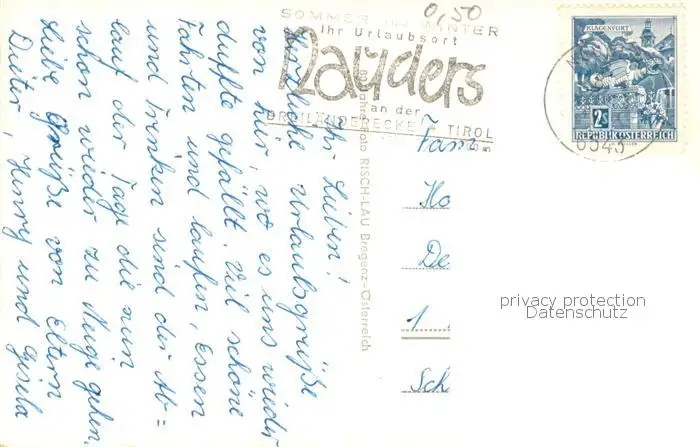 SOMMER UND WINTER
Ihr Urlaubsort
Nauders
an der
DREILÄNDERECKE TIROL
0,50
KLAGENFURT
2S
REPUBLIK ÖSTERREICH
6543
Ihr Lieben!
Herzliche Urlaubsgrüße
von hier, wo es uns wieder
dufte gefällt. Viel schöne
Fahrten und laufen, Essen
und Trinken sind der Ab=
lauf der Tage die nun
schon wieder zu Neige gehen.
Liebe Grüße von Eltern
Dieter, Henny und Gisela
Foto RISCH-LAU Bregenz-Österreich
Fam
Ho
De
1
Sch
privacy protection
Datenschutz